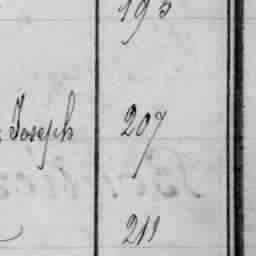 195
Joseph 207
211